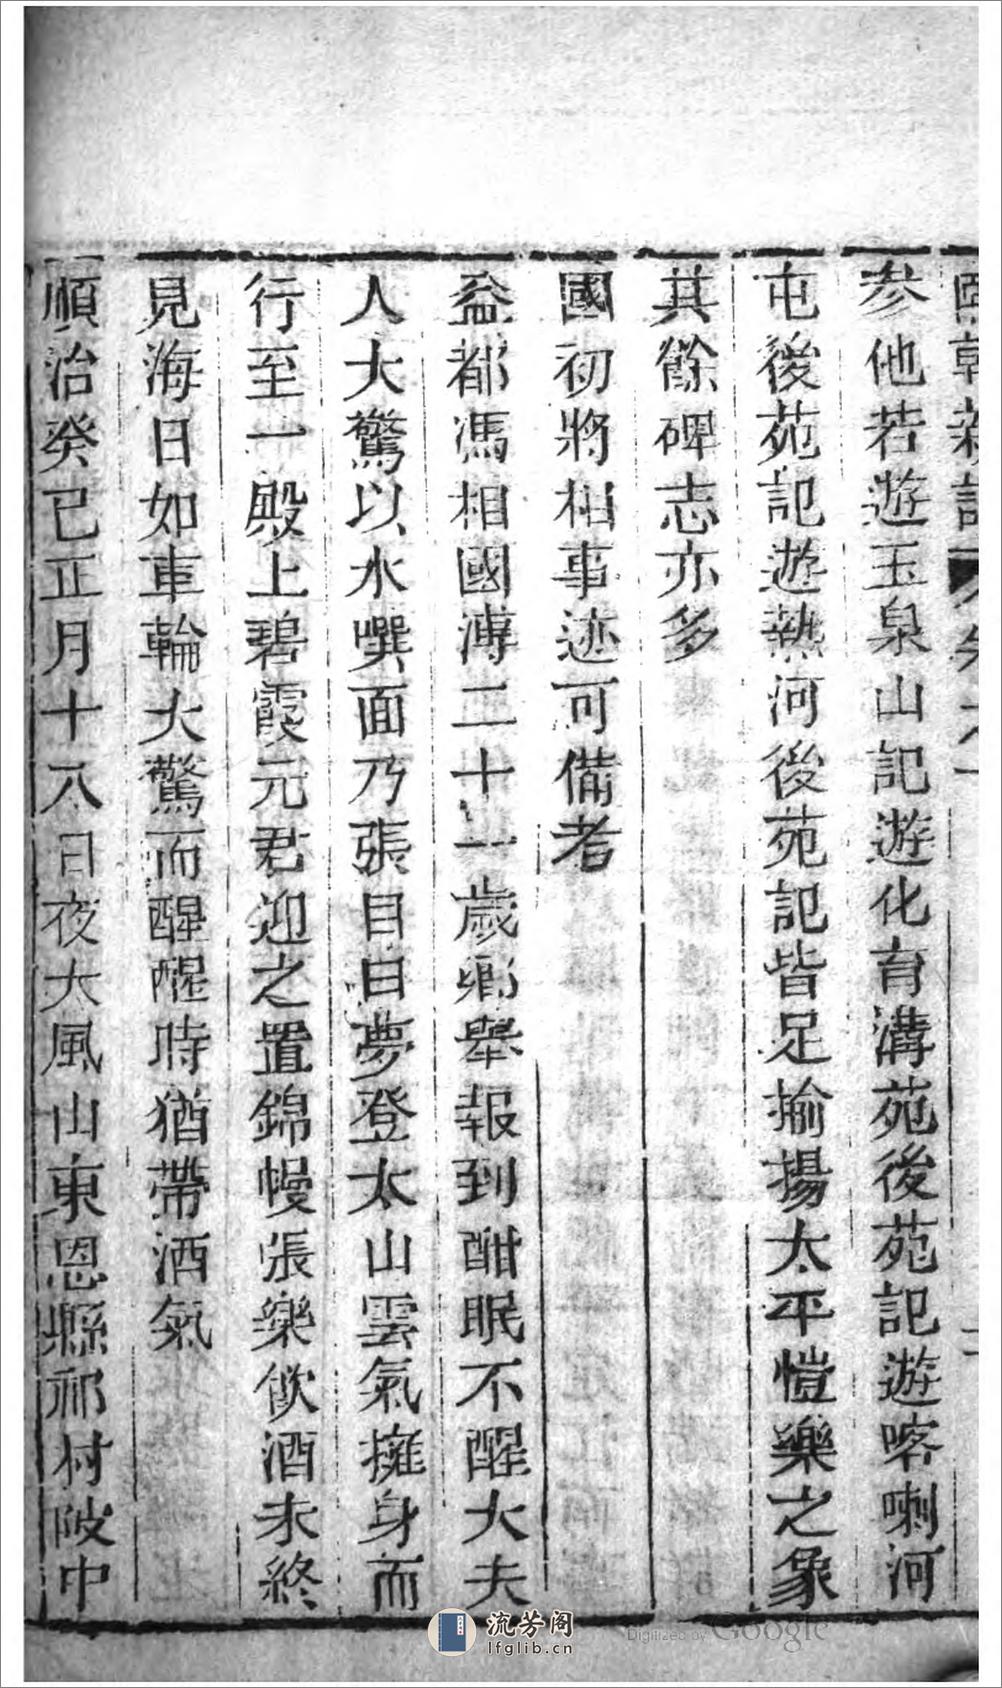 參他若遊玉泉山記遊化育溝苑後苑記遊喀喇河
屯後苑記遊熱河後苑記皆足揄揚太平愷樂之象
其餘碑志亦多
國初將相事迹可備考
益都馮相國溥二十一歲鄉舉報到酣眠不醒大夫
人大驚以水噀面乃張目曰夢登太山雲氣擁身而
行至一殿上碧霞元君迎之置錦幔張樂飲酒未終
見海日如車輪大驚而醒醒時猶帶酒氣
順治癸巳正月十八日夜大風山東恩縣祁村陂中
流芳阁
lfglib.cn
Digitized by Google